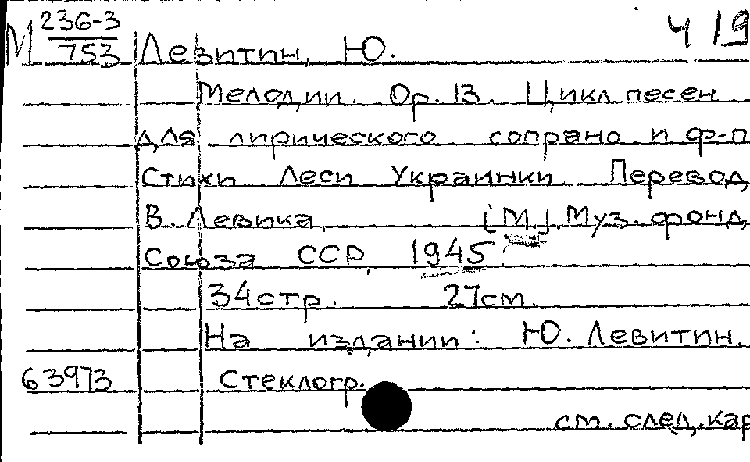 М 236-3 Ч 19
753 Левитин, Ю.
Мелодии. Op. 13. Цикл песен
для лирического сопрано и ф-п
Стихи Леси Украинки. Перевод
В. Левика. [М.], Муз. фонд
Союза ССР, 1945.
34 стр. 27 см.
На издании: Ю. Левитин.
63973 Стеклогр.
см. след. кар